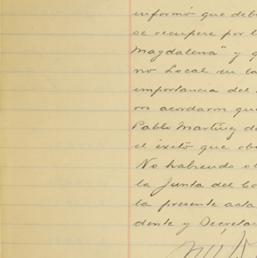 informó que deb
se recupere por l
Magdalena" y q
no Local en la
importancia del
ron acordaron qu
Pablo Martínez de
el éxito que ob
No habiendo o
la Junta del Co
la presente acta
dente y Secreta